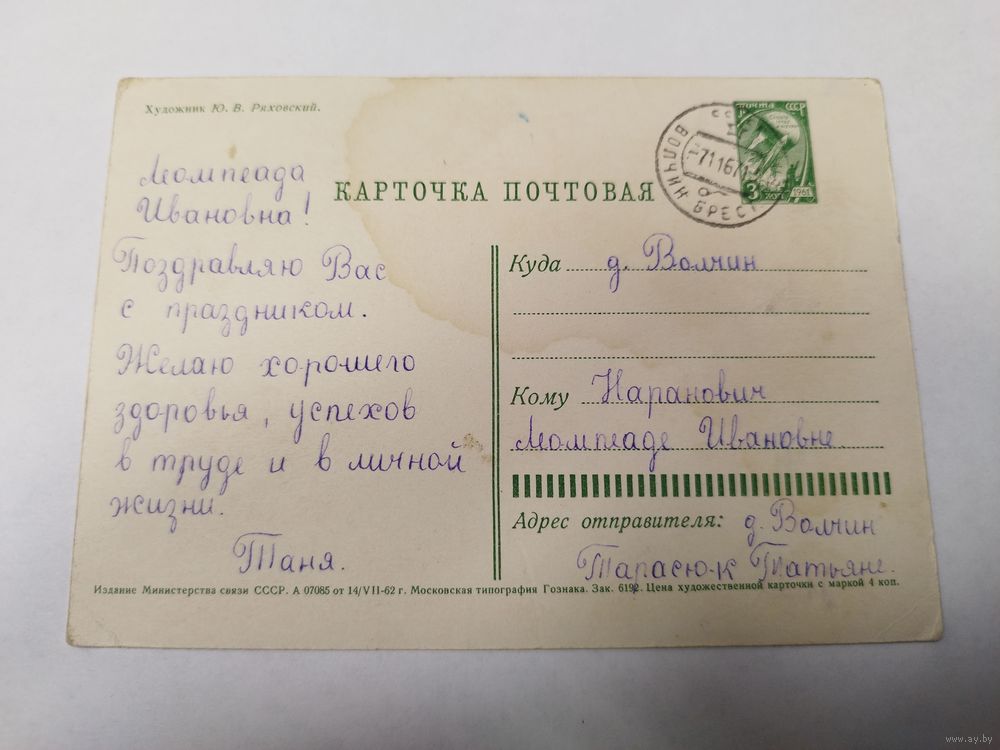 Художник Ю. В. Ряховский.
Ивановна!
Поздравляю Вас
с праздником.
Желаю хорошего
здоровья, успехов
в труде и в личной
жизни.
Таня.
КАРТОЧКА ПОЧТОВАЯ
ПОЧТА СССР
1961
3
ВОЛЧИН БРЕСТ
Куда д. Волчин
Кому Наранович
Ивановне
Адрес отправителя: д. Волчин
Тарасюк Татьяне.
Издание Министерства связи СССР. А 07085 от 14/VII-62 г. Московская типография Гознака. Зак. 6192. Цена художественной карточки с маркой 4 коп.
www.ay.by